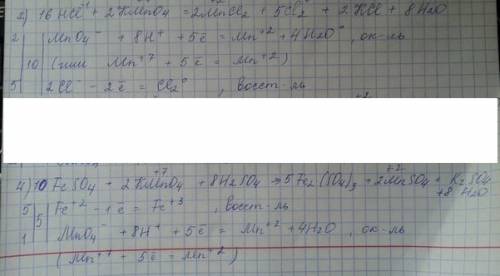 2) 16 HCl⁻¹ + 2 KMnO₄ = 2MnCl₂ + 5Cl₂⁰ + 2 KCl + 8 H₂O
2 | MnO₄⁻ + 8H⁺ + 5ē = Mn⁺² + 4H₂O, ок-ль
10 (или Mn⁺⁷ + 5ē = Mn⁺²)
5 | 2Cl⁻ - 2ē = Cl₂⁰, восст-ль
4) 10 FeSO₄ + 2 KMnO₄ + 8H₂SO₄ ⇒ 5 Fe₂(SO₄)₃ + 2MnSO₄ + K₂SO₄
+ 8 H₂O
5 | 5 | Fe⁺² - 1ē = Fe⁺³, восст-ль
1 | MnO₄⁻ + 8H⁺ + 5ē = Mn⁺² + 4H₂O, ок-ль
(Mn⁺⁷ + 5ē = Mn⁺²)